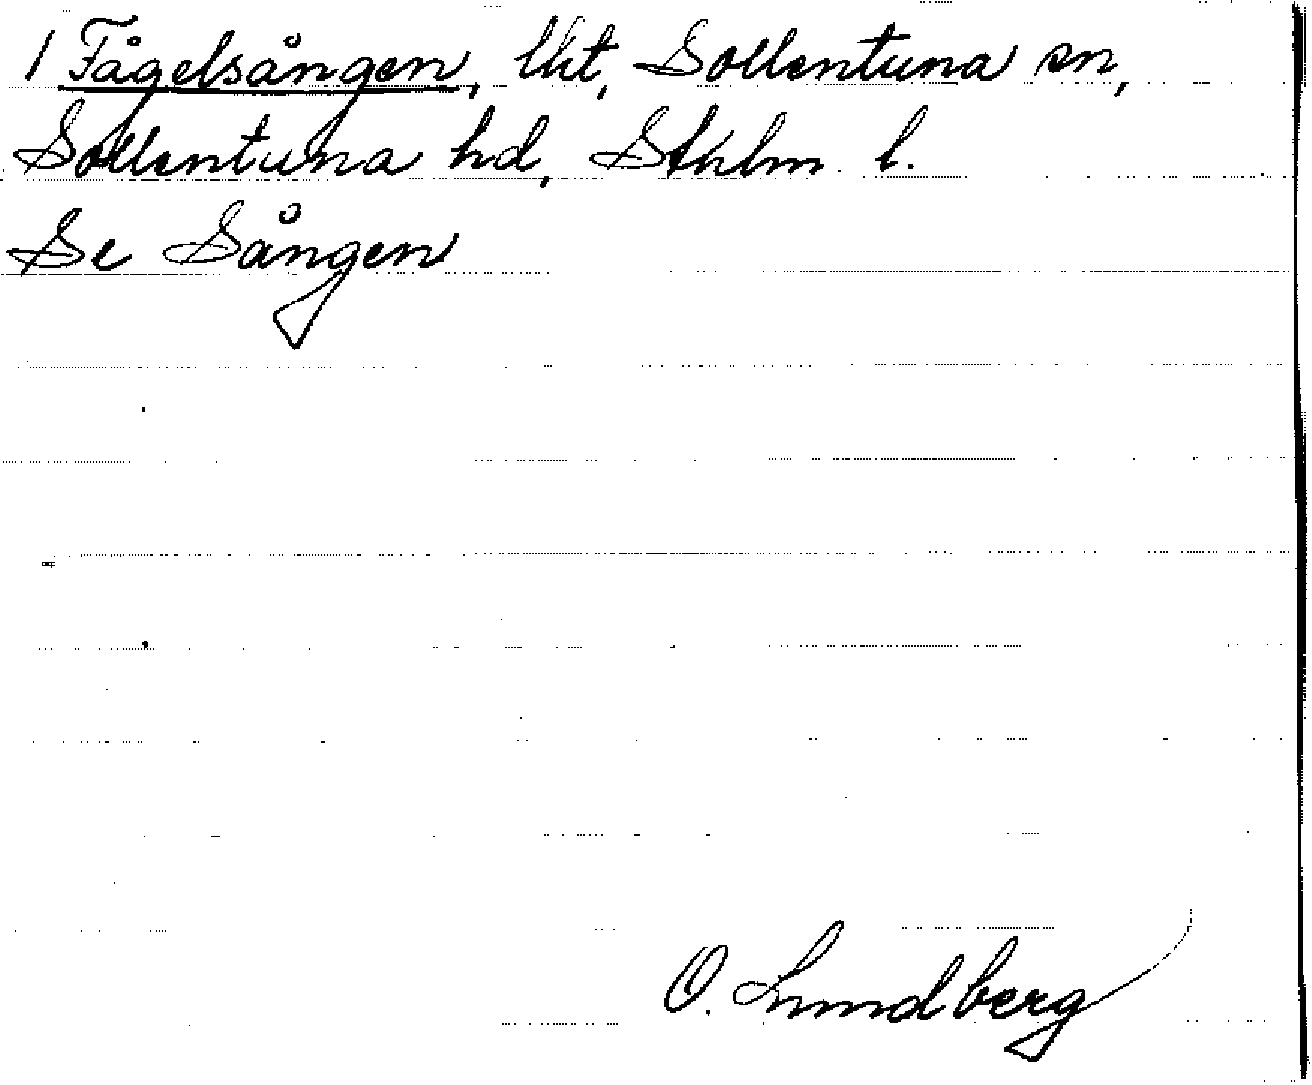 1 Fågelsången, lht, Sollentuna sn,
Sollentuna hd, Sthlm l.
Se Sången
O. Lundberg